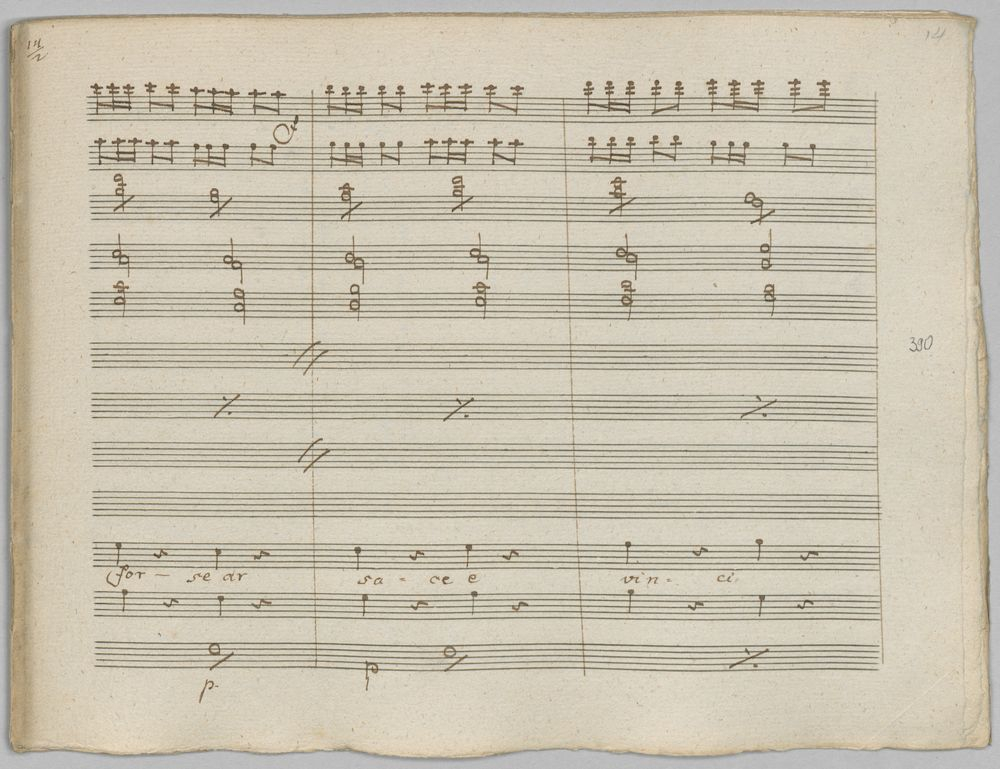 14
2
14
390
for - se ar sa - ce e vin - ci
p.
p